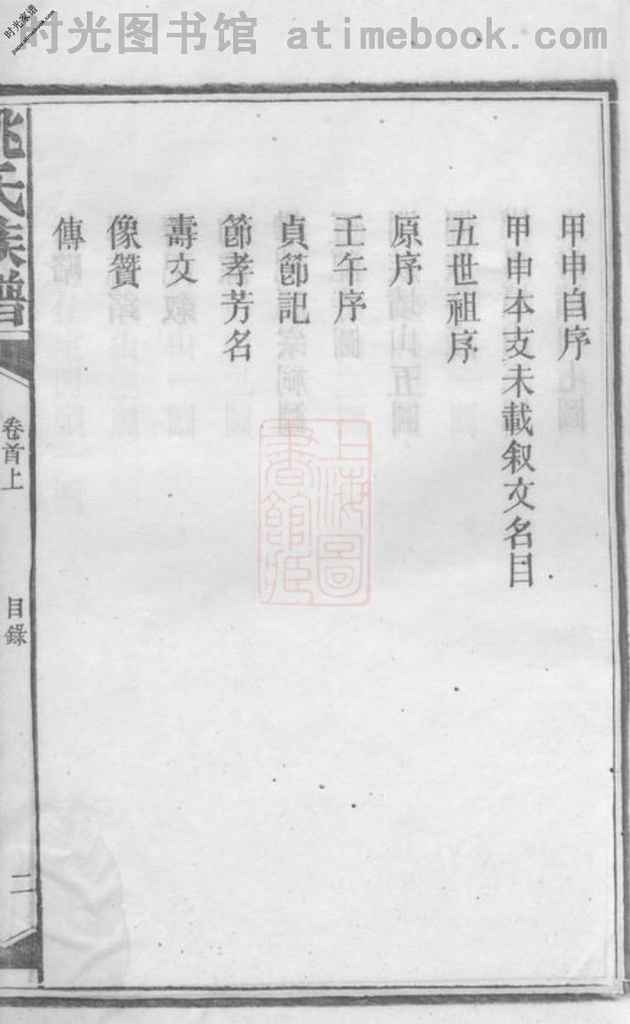 时光图书馆 atimebook.com
时光家谱
www.atimebook.com
甲申自序
甲申本支未載叙文名目
五世祖序
原序
壬午序
貞節記
節孝芳名
壽文
像贊
傳
姚氏族譜
卷首上
目錄
二
上海圖
書館藏